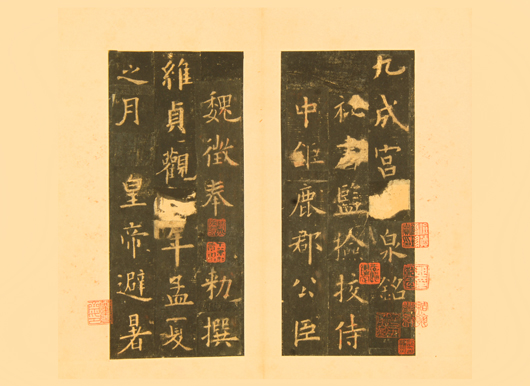 九成宮泉銘
秘書監撿挍侍
中鉅鹿郡公臣
魏徵奉 勑撰
維貞觀年孟夏
之月 皇帝避暑